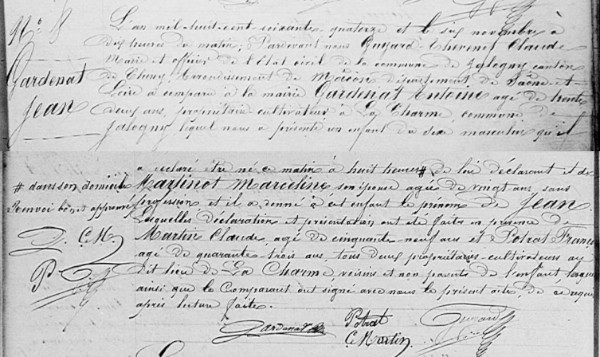 N° 8
Gardenat
Jean
L'an mil huit cent soixante quatorze et le six novembre à
dix heures du matin, Pardevant nous Guyard Thevenet Claude
Marie et officier de l'état civil de la commune de Jalogny canton
de Cluny Arrondissement de Mâcon département de Saône et
Loire à comparu à la mairie Gardenat Antoine agé de trente
deux ans, propriétaire cultivateur à La Charme, commune de
Jalogny lequel nous a présenté un enfant du sexe masculin qu'il
a déclaré être né ce matin à huit heures # de lui déclarant et de
Martinot Marceline son épouse agée de vingt ans, sans
profession et il a donné à cet enfant le prénom de Jean
Lesquelles déclaration et présentation ont été faites en présence de
Martin Claude, agé de cinquante neuf ans et Potrat
agé de quarante trois ans tous deux propriétaires-cultivateurs au
dit lieu de La Charme, voisins et non parents de l'enfant,
ainsi que le Comparant ont signé avec nous le présent acte de
après lecture faite.
# dans son domicile
Renvoi approuvé
C. M.
P.
Gardenat
Potrat
C. Martin
Guyard